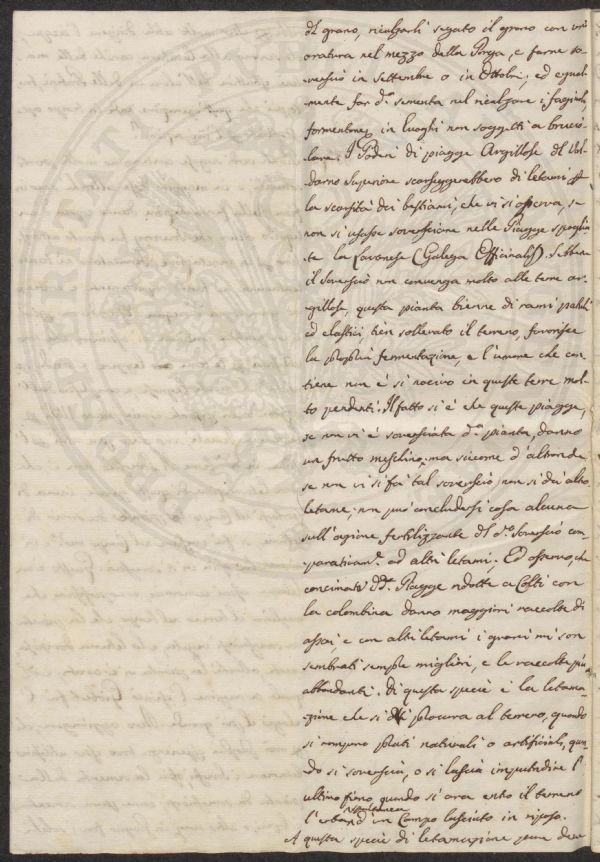 del grano, rincalzarli segato il grano con un'
aratura nel mezzo della Porca, e farne so
vescio in Settembre o in Ottobre; ed egual
mente far d.ª sementa nel rincalzare i fagioli
formentone, in luoghi non soggetti a brucio
lare. I Poderi di piagge Argillose del Val
darno Superiore scarseggerebbero di letami p
la scarsità dei bestiami, che vi si osserva, se
non si usasse sovesciare nelle Piagge spoglia
te la Lavanese (Galega Officinalis). Sebbene
il Sovescio non convenga molto alle terre ar
gillose, questa pianta bienne di rami
ed elastici, tien sollevato il terreno, favorisce
la fermentazione, e l'umore che con
tiene non è sì nocivo in queste terre mol
to pendenti. Il fatto si è che queste piagge,
se non vi è sovesciata d.ª pianta, danno
un frutto meschino, ma siccome d'altronde
se non vi si fà tal sovescio, non si dà altro
letame, non può concludersi cosa alcuna
sull'azione fertilizzante del d.º Sovescio com
parativam.e ad altri letami. Ed osservo, che
concimate d.e Piagge ridotte a Colti con
la colombina danno maggiori raccolte di
assai, e con altri letami i grani mi son
sembrati sempre migliori, e le raccolte più
abbondanti. Di questa specie è la letama
zione che si procura al terreno, quando
si rompono prati naturali o artificiali, quan
do si sovescia, o si lascia imputridire l'
ultimo fieno quando si ara entro il terreno
l'erba nata spontanea in Campo lasciato in riposo.
A questa specie di letamazione pure deve